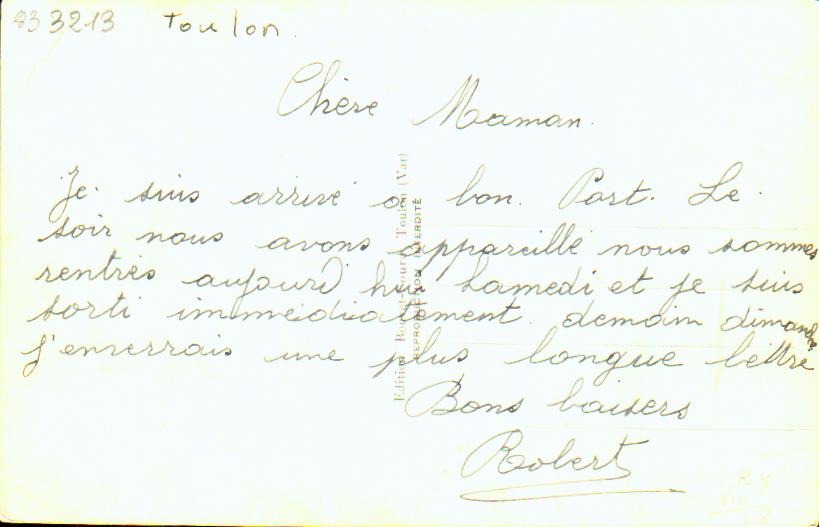 83 3213 Toulon
Chère Maman.
Je suis arrivé a bon. Port. Le
soir nous avons appareillé nous sommes
rentrés aujourd hui Samedi et je suis
sorti immédiatement demain dimanche
j'enverrais une plus longue lettre
Bons baisers
Robert
Toulon (Var)
REPRODUCTION INTERDITE